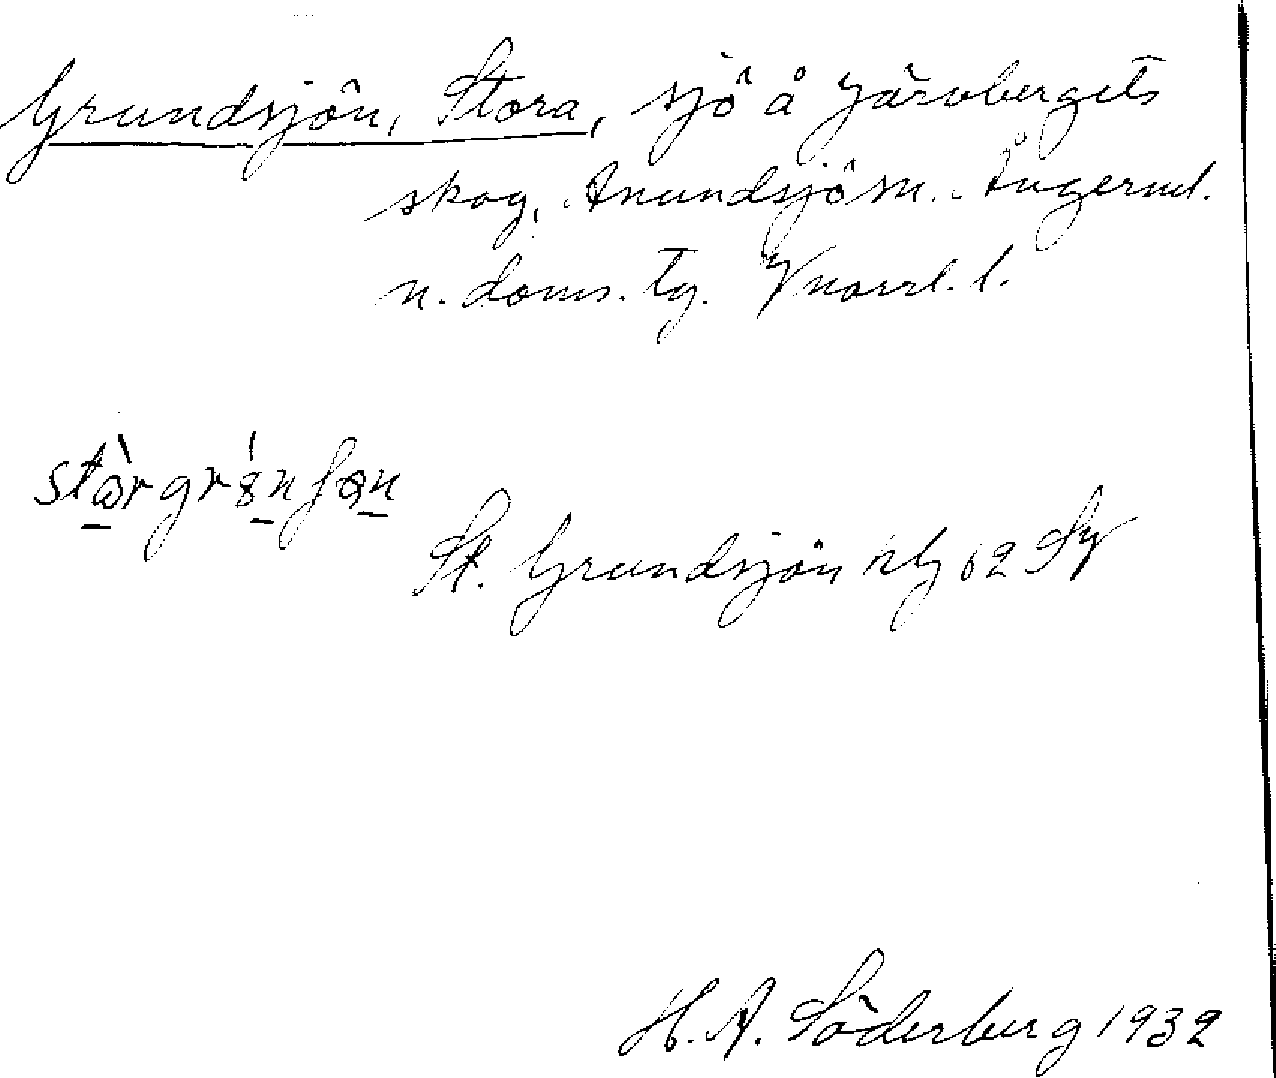 Grundsjön, Stora, sjö å Järvbergets
skog, Anundsjö sn. Ångerml.
n. doms. tg. Vnorrl. l.
St. Grundsjön 62 Sy
H. A. Söderberg 1932